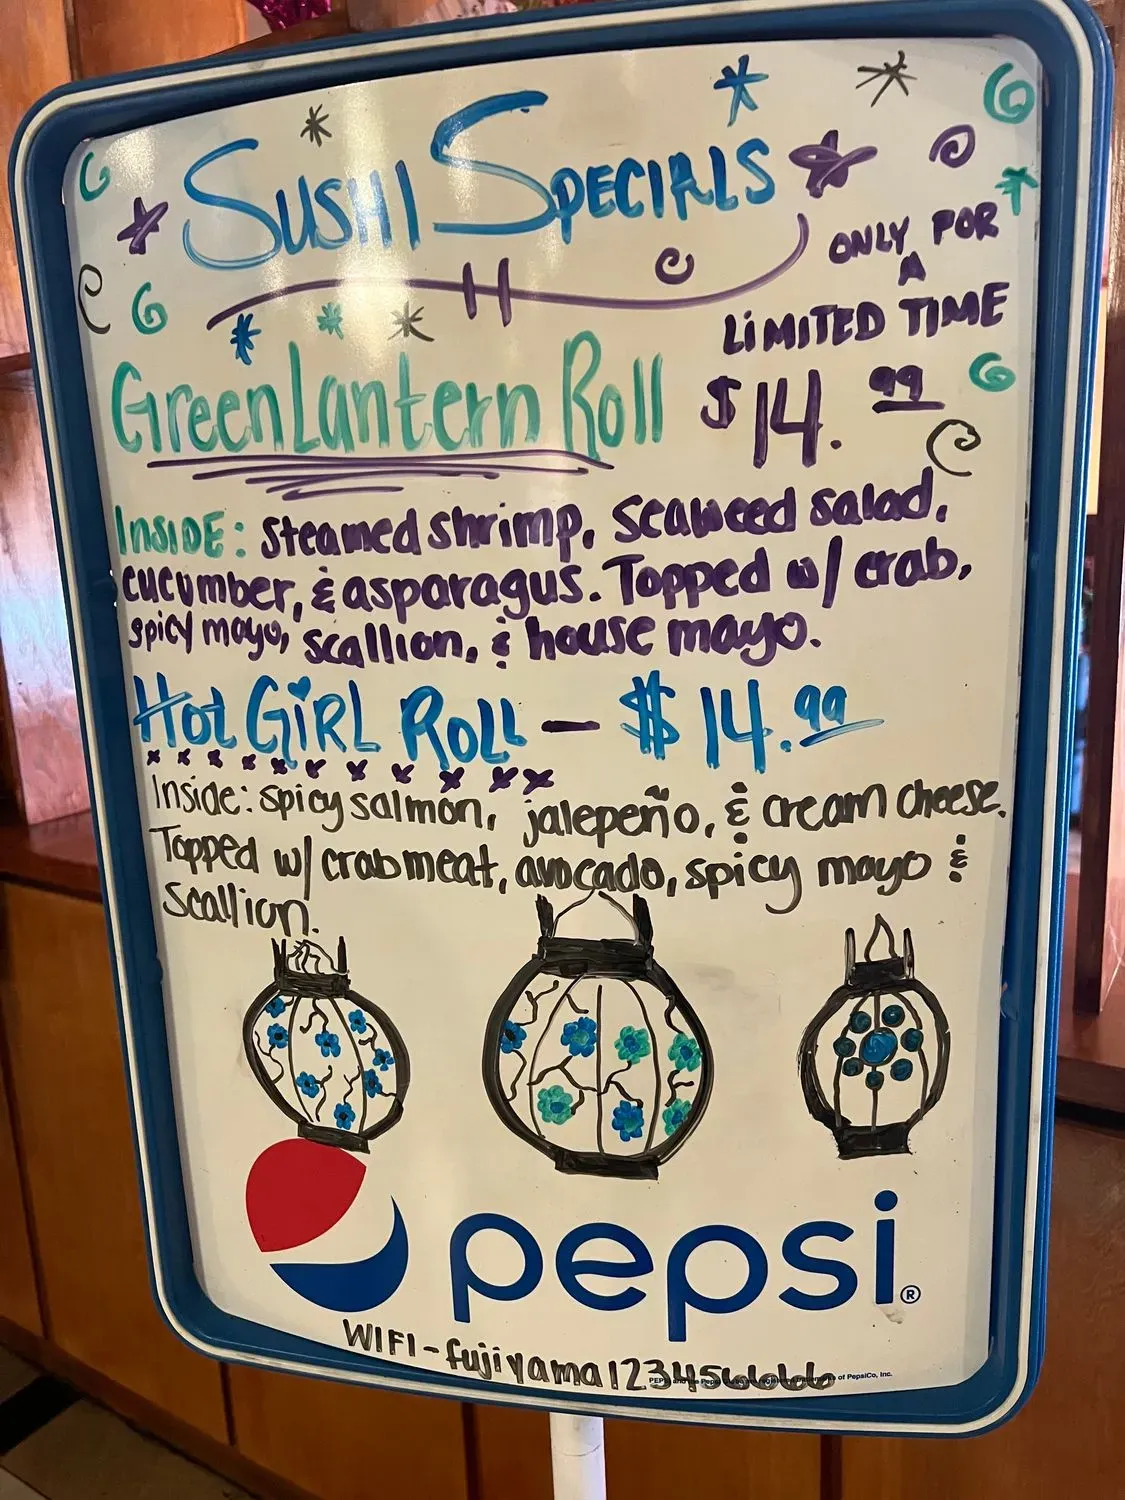 SUSHI SPECIALS
ONLY FOR
A
LIMITED TIME
Green Lantern Roll $14.99
INSIDE: Steamed shrimp, Seaweed salad,
cucumber, & asparagus. Topped w/ crab,
spicy mayo, scallion, & house mayo.
HOT GIRL ROLL - $14.99
Inside: spicy salmon, jalepeño, & cream cheese.
Topped w/ crabmeat, avocado, spicy mayo &
Scallion.
pepsi®
WIFI - fujiyama
of PepsiCo, Inc.